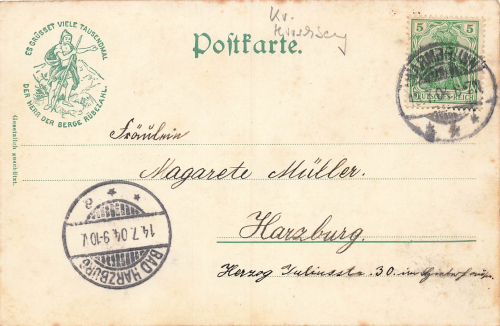 ES GRÜSSET VIELE TAUSENDMAL
DER HERR DER BERGE RÜBEZAHL.
Gesetzlich geschützt.
Kr.
Postkarte.
5 5
Fräulein
Magarete Müller.
Harzburg.
Herzog Juliusstr. 30. im
BAD HARZBURG
14.7.04.9-10 V.
* * a